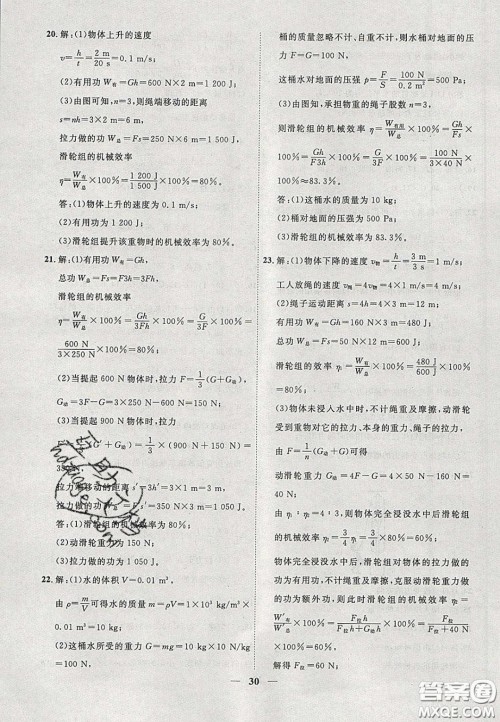 20. 解：(1)物体上升的速度
v=h/t=2 m/20 s=0.1 m/s；
(2)有用功 W有=Gh=600 N×2 m=1 200 J；
(3)由图可知，n=3，则绳端移动的距离
s=nh=3×2 m=6 m，
拉力做的功 W总=Fs=250 N×6 m=1 500 J，
滑轮组的机械效率
η=W有/W总×100%=1 200 J/1 500 J×100%=80%。
答：(1)物体上升的速度为 0.1 m/s；
(2)有用功为 1 200 J；
(3)滑轮组提升该重物时的机械效率为 80%。
21. 解：(1)有用功 W有=Gh，
总功 W总=Fs=F×3h=3Fh，
滑轮组的机械效率
η=W有/W总×100%=Gh/3Fh×100%=G/3F×100%=
600 N/3×250 N×100%=80%；
(2)当提起 600 N 物体时，拉力 F=1/3(G+G动)，
G动=3F-G=3×250 N-600 N=150 N；
(3)当提起 900 N 物体时，拉力
(G'+G动)=1/3×(900 N+150 N)=
拉力移动的距离 s'=3h'=3×1 m=3 m，
答：(1)滑轮组的机械效率为 80%；
(2)动滑轮重力为 150 N；
(3)拉力的功为
22. 解：(1)水的体积 V=0.01 m³，
由 ρ=m/V可得水的质量 m=ρV=1×10³ kg/m³×
0.01 m³=10 kg；
(2)这桶水所受的重力 G=mg=10 kg×10 N/kg
=100 N，
桶的质量忽略不计、自重不计，则水桶对地面的压
力 F=G=100 N，
这桶水对地面的压强 p=F/S=100 N/0.2 m²=500 Pa；
(3)由图知，承担物重的绳子股数 n=3，
则滑轮组的机械效率 η=W有/W总×100%=Gh/Fs
×100%=Gh/F3h×100%=G/3F×100%=100 N/3×40 N×
100%≈83.3%。
答：(1)这桶水的质量为 10 kg；
(2)桶对地面的压强为 500 Pa；
(3)滑轮组的机械效率为 83.3%。
23. 解：(1)物体下降的速度 v物=h/t=3 m/3 s=1 m/s，
工人放绳的速度 v绳=4v物=4×1 m/s=4 m/s；
(2)绳子运动距离 s=4h=4×3 m=12 m，
有用功 W有=Gh=160 N×3 m=480 J，
总功 W总=Fs=50 N×12 m=600 J，
滑轮组的机械效率 η₁=W有/W总×100%=480 J/600 J
×100%=80%；
(3)物体未浸入水中时，不计绳重及摩擦，动滑轮
受到重物对它的拉力、本身的重力、绳子的拉力，
则 F=1/n(G+G动)，
动滑轮重力 G动=4F-G=4×50 N-160 N=
40 N；
物体完全浸没水中后，滑轮组的机械效率 η₂与物
体浸入水前的滑轮组的机械效率 η₁之比为 3∶4，
即η₂/η₁=3/4，则 η₂=3/4η₁=3/4×80%=60%，
物体完全浸没水中后，滑轮组对重物的拉力做的
功为有用功，不计绳重及摩擦，克服动滑轮重力做
的功为额外功，则此时滑轮组的机械效率 η₂=
W'有/W'总=F拉h/(F拉h+G动h)=F拉/(F拉+G动)=F拉/(F拉+40 N)
×100%=60%，
解得 F拉=60 N；
30
答案圈
MXQE.COM